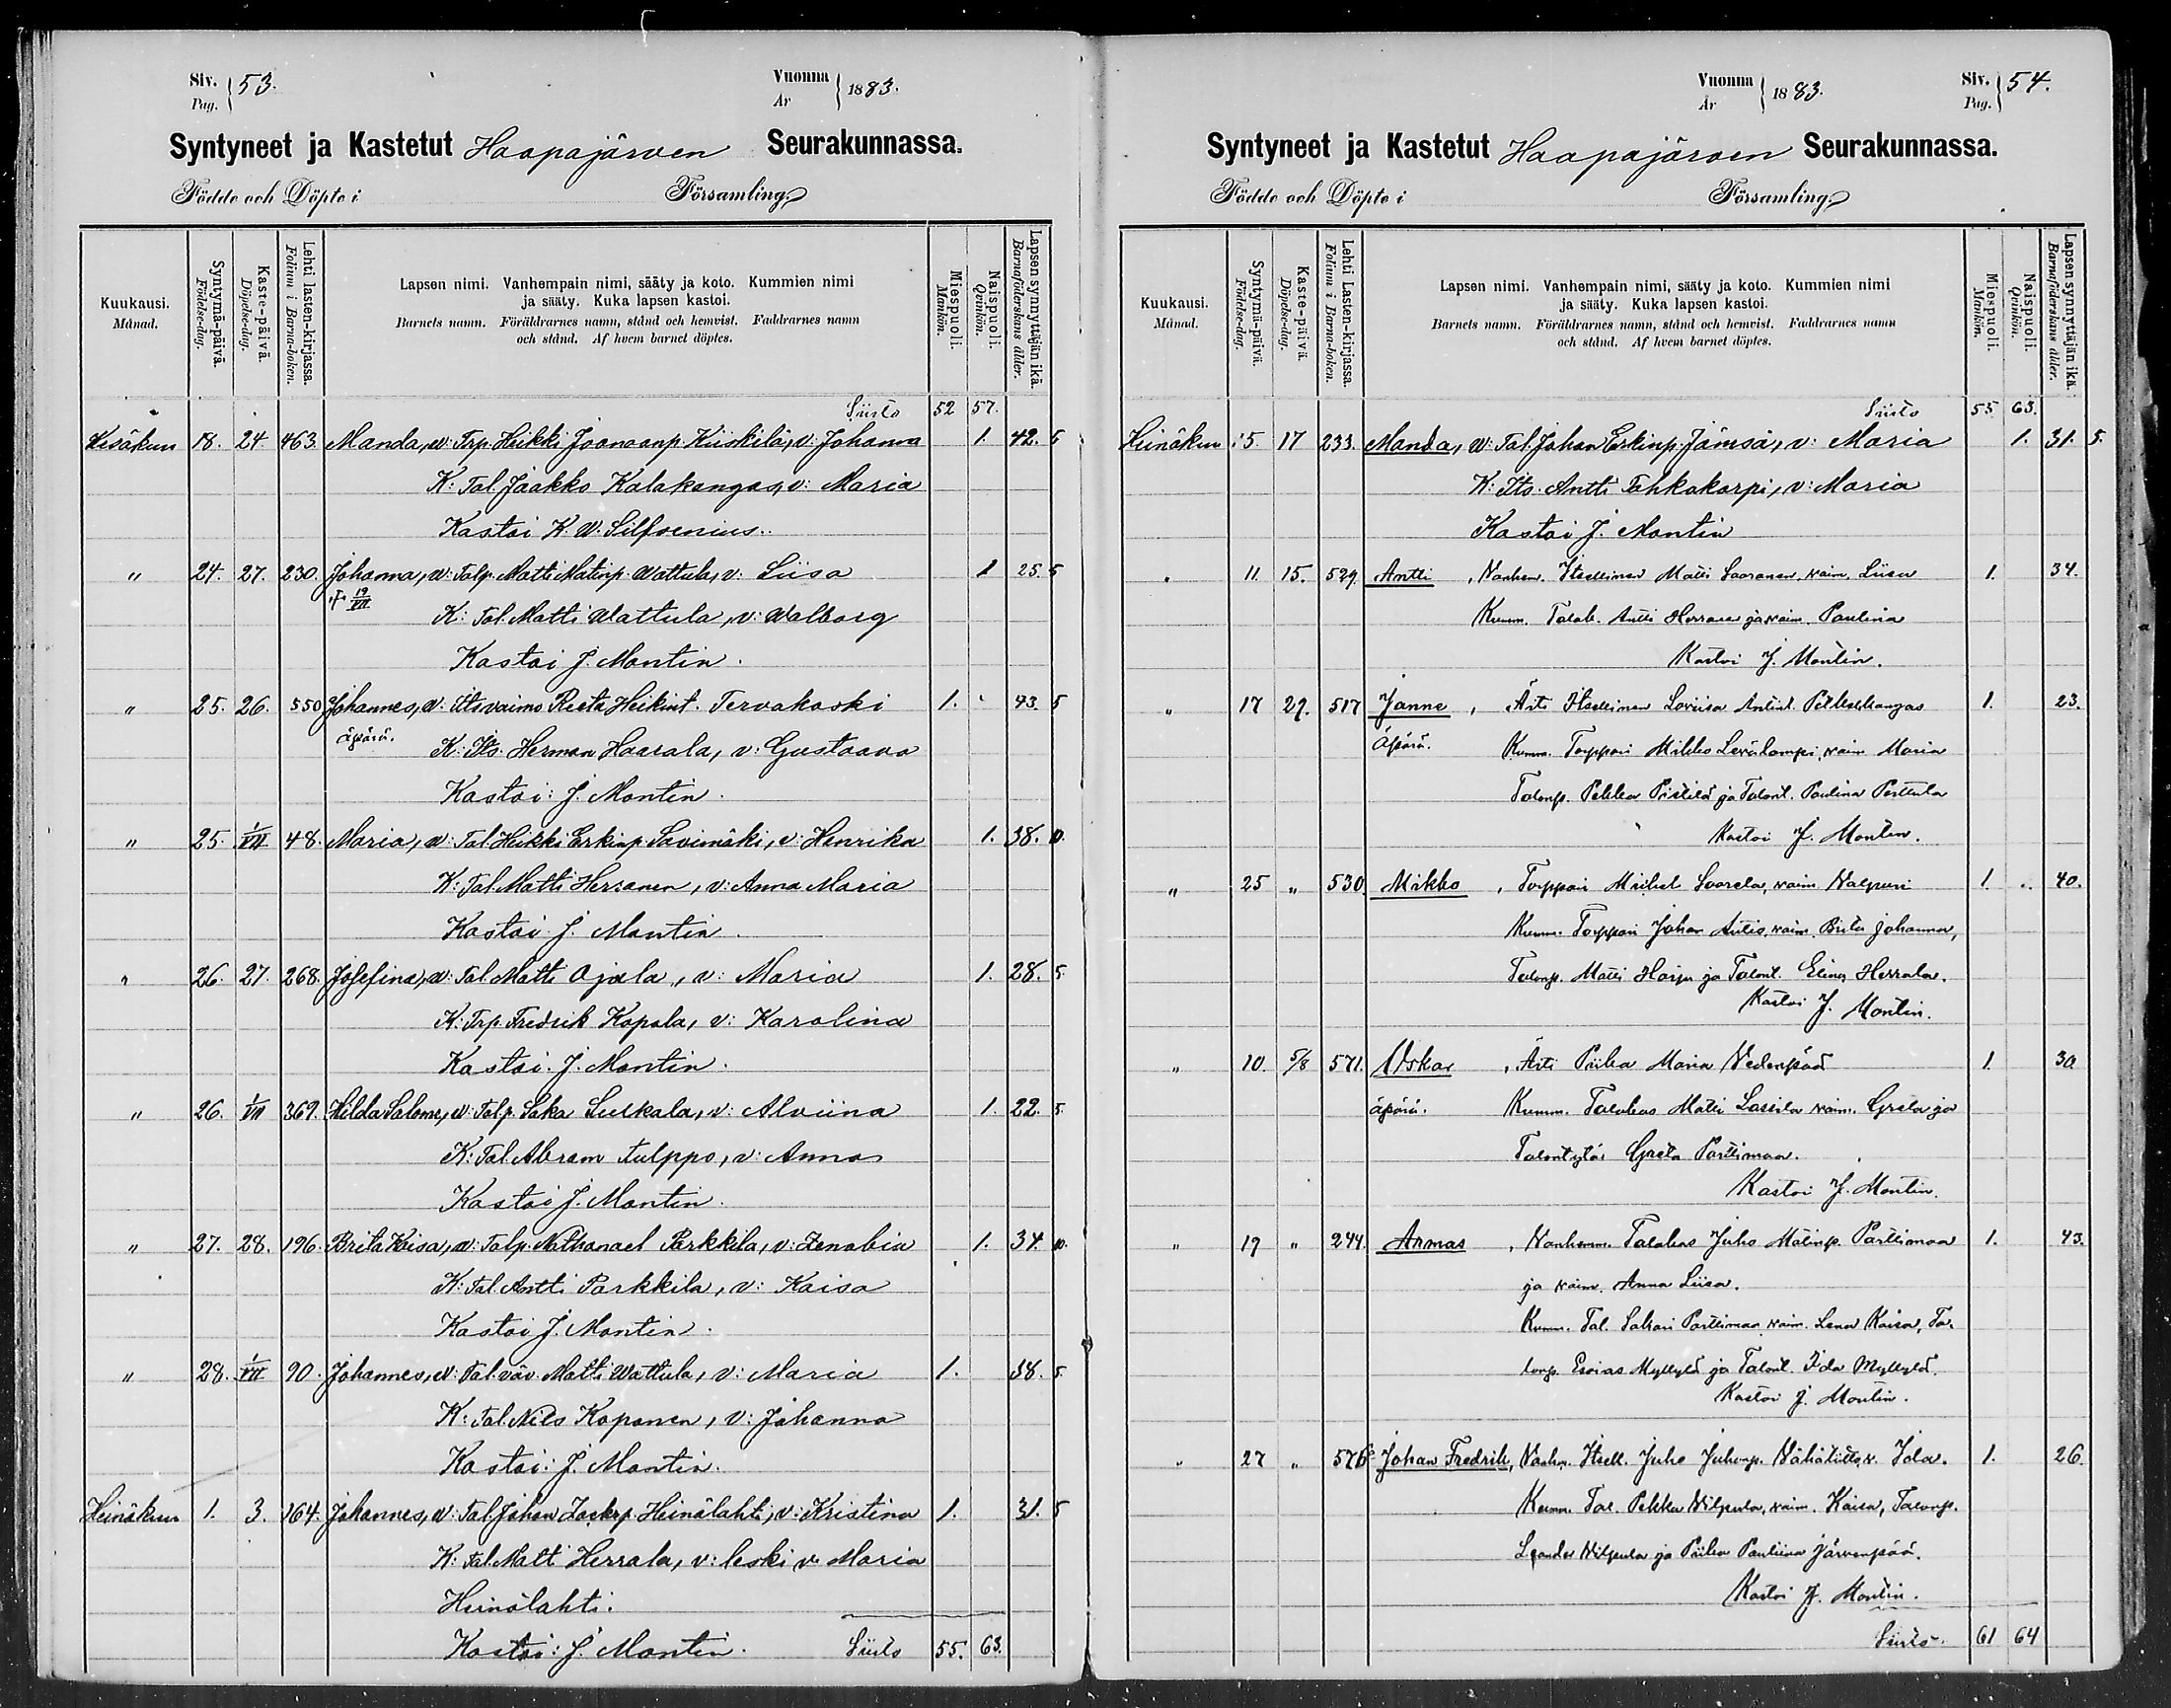 Siv. Pag. } 53.
Vuonna År } 1883.
Syntyneet ja Kastetut Haapajärven Seurakunnassa.
Födde och Döpte i Församling.
Kuukausi. Månad.
Syntymä-päivä. Födelse-dag.
Kaste-päivä. Döpelse-dag.
Lehti lasten-kirjassa. Folium i Barna-boken.
Lapsen nimi. Vanhempain nimi, sääty ja koto. Kummien nimi
ja sääty. Kuka lapsen kastoi.
Barnets namn. Föräldrarnes namn, stånd och hemvist. Faddrarnes namn
och stånd. Af hvem barnet döptes.
Miespuoli. Mankön.
Naispuoli. Qvinkön.
Lapsen synnyttäjän ikä. Barnaföderskans ålder.
Siirto 52 57.
Kesäkuu 18. 24. 463. Manda, w: Trp. Heikki Joonaanp. Kiiskilä, v: Johanna 1. 42. 5
K: Tal. Jaakko Kalakangas, v: Maria
Kastoi K. W. Silfvenius.
" 24. 27. 230. Johanna, w: Talp. Matti Matinp. Wattula, v: Liisa 1 25. 5
† 19/VII
K: Tal. Matti Wattula, v: Walborg
Kastoi J. Montin.
" 25. 26. 550 Johannes, w: Itsvaimo Reeta Heikint. Tervakoski 1. 43. 5
äpärä.
K: Its. Herman Haarala, v: Gustaava
Kastoi: J. Montin.
" 25. 1/VII 48. Maria, w: Tal. Heikki Erkinp. Savimäki, v: Henrika 1. 38. 10.
K: Tal. Matti Herranen, v: Anna Maria
Kastoi J. Montin.
" 26. 27. 268. Josefina, w: Tal. Matti Ojala, v: Maria 1. 28. 5.
K: Trp. Fredrik Kopola, v: Karolina
Kastoi. J. Montin.
" 26. 1/VII 369. Hilda Salome, w: Talp. Saka Suskala, v: Alviina 1. 22. 5.
K: Tal. Abram Tulppo, v: Anna
Kastoi J. Montin.
" 27. 28. 196. Brita Kaisa, w: Talp. Nathanael Parkkila, v: Zenobia 1. 34. 10.
K: Tal. Antti Parkkila, v: Kaisa
Kastoi J. Montin.
" 28. 1/VII 90. Johannes, w: Tal. väv. Matti Wattula, v: Maria 1. 38. 5.
K: Tal. Nils Koponen, v: Johanna
Kastoi: J. Montin.
Heinäkuu 1. 3. 164. Johannes, w: Tal. Johan Zackrp. Heinälahti, v: Kristina 1. 31. 5
K: Tal. Matti Herrala, v: leski v. Maria
Heinälahti.
Kastoi: J. Montin. Siirto 55. 63.
Vuonna År } 1883.
Siv. Pag. } 54.
Syntyneet ja Kastetut Haapajärven Seurakunnassa.
Födde och Döpte i Församling.
Kuukausi. Månad.
Syntymä-päivä. Födelse-dag.
Kaste-päivä. Döpelse-dag.
Lehti Lasten-kirjassa. Folium i Barna-boken.
Lapsen nimi. Vanhempain nimi, sääty ja koto. Kummien nimi
ja sääty. Kuka lapsen kastoi.
Barnets namn. Föräldrarnes namn, stånd och hemvist. Faddrarnes namn
och stånd. Af hvem barnet döptes.
Miespuoli. Mankön.
Naispuoli. Qvinkön.
Lapsen synnyttäjän ikä. Barnaföderskans ålder.
Siirto 55 63.
Heinäkuu 15. 17 233. Manda, w: Tal. Johan Erkinp. Jämsä, v: Maria 1. 31. 5.
K: Its. Antti Tahkakorpi, v: Maria
Kastoi J. Montin
" 11. 15. 529. Antti, Vanhem. Itsellinen Matti Saaranen, vaim. Liisa 1. 34.
Kumm. Talok. Antti Herranen ja vaim. Paulina
Kastoi J. Montin.
" 17 29. 517 Janne, Äiti Itsellinen Loviisa Antint. Pitkäkangas 1. 23.
äpärä.
Kumm. Torppari Mikko Levälampi, vaim. Maria
Talonp. Pekka Pirttilä ja Talont. Paulina Perttula
Kastoi J. Montin.
" 25 " 530. Mikko, Torppari Mikkel Saarela, vaim. Valpuri 1. 40.
Kumm. Torppari Johan Autio, vaim. Brita Johanna,
Talonp. Matti Harju ja Talont. Elina Herrala.
Kastoi J. Montin.
" 10. 5/8 571. Oskar, Äiti Piika Maria Vedenpää 1. 30
äpärä.
Kumm. Talokas Matti Lassila vaim. Greta ja
Talontytär Greta Parttimaa.
Kastoi J. Montin.
" 19 " 244. Armas, Vanhemm. Talokas Juho Matinp. Parttimaa 1. 43.
ja vaim. Anna Liisa.
Kumm. Tal. Sakari Parttimaa vaim. Lena Kaisa, Ta-
lonp. Esaias Myllylä ja Talont. Iida Myllylä.
Kastoi J. Montin.
" 27 " 576 Johan Fredrik, Vanh. Itsell. Juho Juhonp. Vähätiitto, v. Ida. 1. 26
Kumm. Tal. Pekka Vilpula, vaim. Kaisa, Talonp.
Leander Vilpula ja Piika Pauliina Järvenpää.
Kastoi J. Montin.
Siirto. 61 64